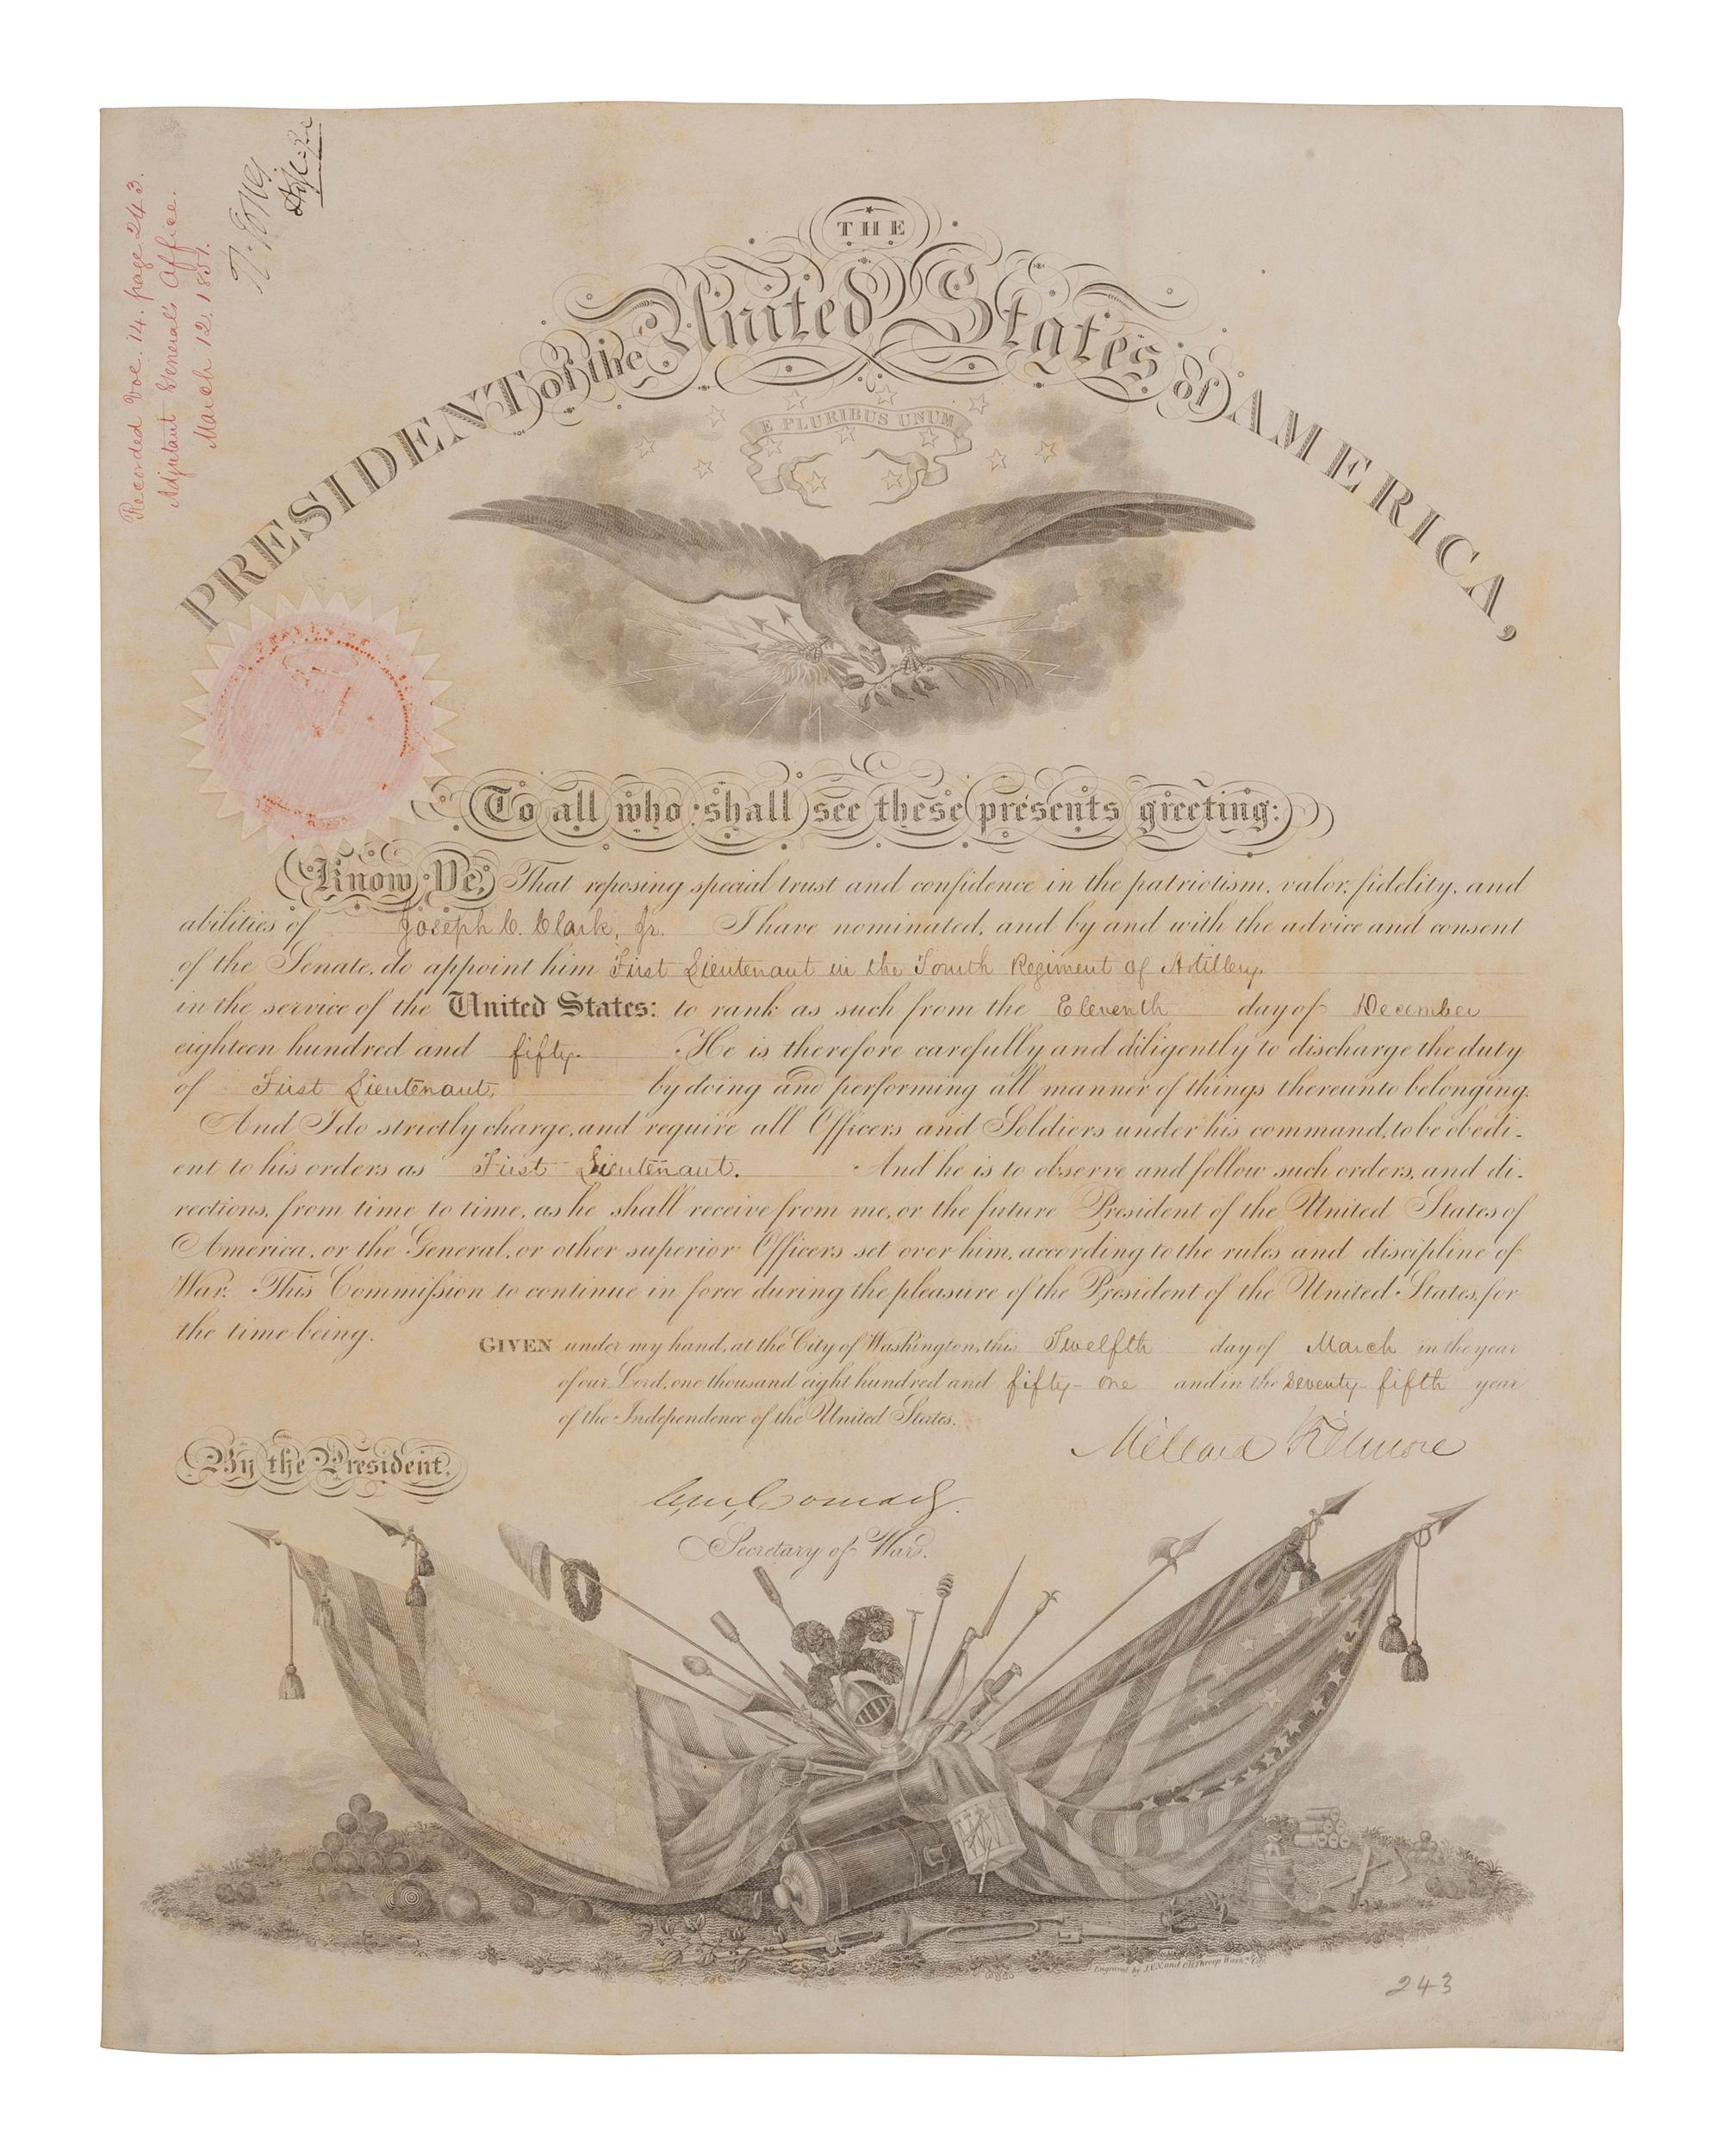 Recorded Vol. 14. page 243.
Adjutant General's Office.
March 12. 1851.
THE
PRESIDENT of the United States of AMERICA,
E PLURIBUS UNUM
To all who shall see these presents greeting:
Know Ye, That reposing special trust and confidence in the patriotism, valor, fidelity, and
abilities of Joseph C. Clark, Jr. I have nominated, and by and with the advice and consent
of the Senate, do appoint him First Lieutenant in the Fourth Regiment of Artillery,
in the service of the United States: to rank as such from the Eleventh day of December
eighteen hundred and fifty. He is therefore carefully and diligently to discharge the duty
of First Lieutenant, by doing and performing all manner of things thereunto belonging.
And I do strictly charge, and require all Officers and Soldiers under his command, to be obedi-
ent to his orders as First Lieutenant. And he is to observe and follow such orders, and di-
rections, from time to time, as he shall receive from me, or the future President of the United States of
America, or the General, or other superior Officers set over him, according to the rules and discipline of
War. This Commission to continue in force during the pleasure of the President of the United States, for
the time being.
GIVEN under my hand, at the City of Washington, this Twelfth day of March in the year
of our Lord, one thousand eight hundred and fifty-one and in the seventy-fifth year
of the Independence of the United States.
Millard Fillmore
By the President,
C. M. Conrad
Secretary of War.
Engraved by J.V.N. and O.H. Throop Washn. City
243